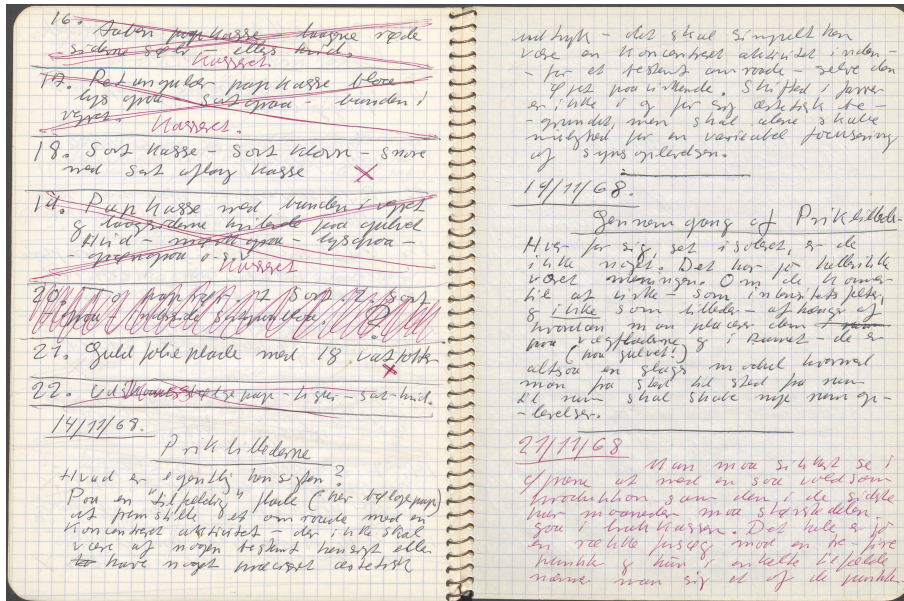 16. Aaben papkasse langne røde
siderne sølv – ellers hvid.
Kasseret.
17. Rektangulær papkasse
lys graa – sort graa – bunden i
vejret.
Kasseret.
18. Sort kasse – sort klovn – snore
med sort aflang kasse
19. Pap kasse med bunden i vejret
og laagsiderne hvilende paa gulvet
Hvid – mørk graa – lysgraa –
Kasseret
20. sort
21. Guld folie plade med 18 vatpletter
22. sort-hvid.
14/11/68.
Prikbillederne
Hvad er egentlig hensigten?
Paa en "tilfældig" plade (her bølgepap)
at fremstille et omraade med en
koncentreret aktivitet – der ikke skal
være af nogen bestemt hensigt eller
have noget præciseret æstetisk
udtryk – det skal simpelthen
være en koncentreret aktivitet inden-
– for et bestemt omraade – selve den
øjet paavirkende. Skiftet i farver
er ikke i og for sig æstetisk be-
– grundet, men skal alene skabe
mulighed for en variabel focusering
af synsoplevelsen.
19/11/68.
Gennemgang af Prikbilleder
Hver for sig, set isoleret, er de
ikke noget. Det har jo heller ikke
været meningen. Om de kommer
til at virke – som intensitetsfelter,
og ikke som billeder – afhænger af
hvordan man placerer dem
paa vægfladerne og i rummet – de er
(paa gulvet!)
altsaa en slags model hvormed
man fra sted til sted fra rum
til rum skal skabe nye rumop-
– levelser.
21/11/68
Man maa sikkert se i
øjnene at med en saa voldsom
produktion som den i de sidste
par maaneder maa størstedelen
gaa i brakkassen. Det hele er jo
en række forsøg mod en be-
punkter og kun i enkelte tilfælde
nærmer man sig et af de punkter